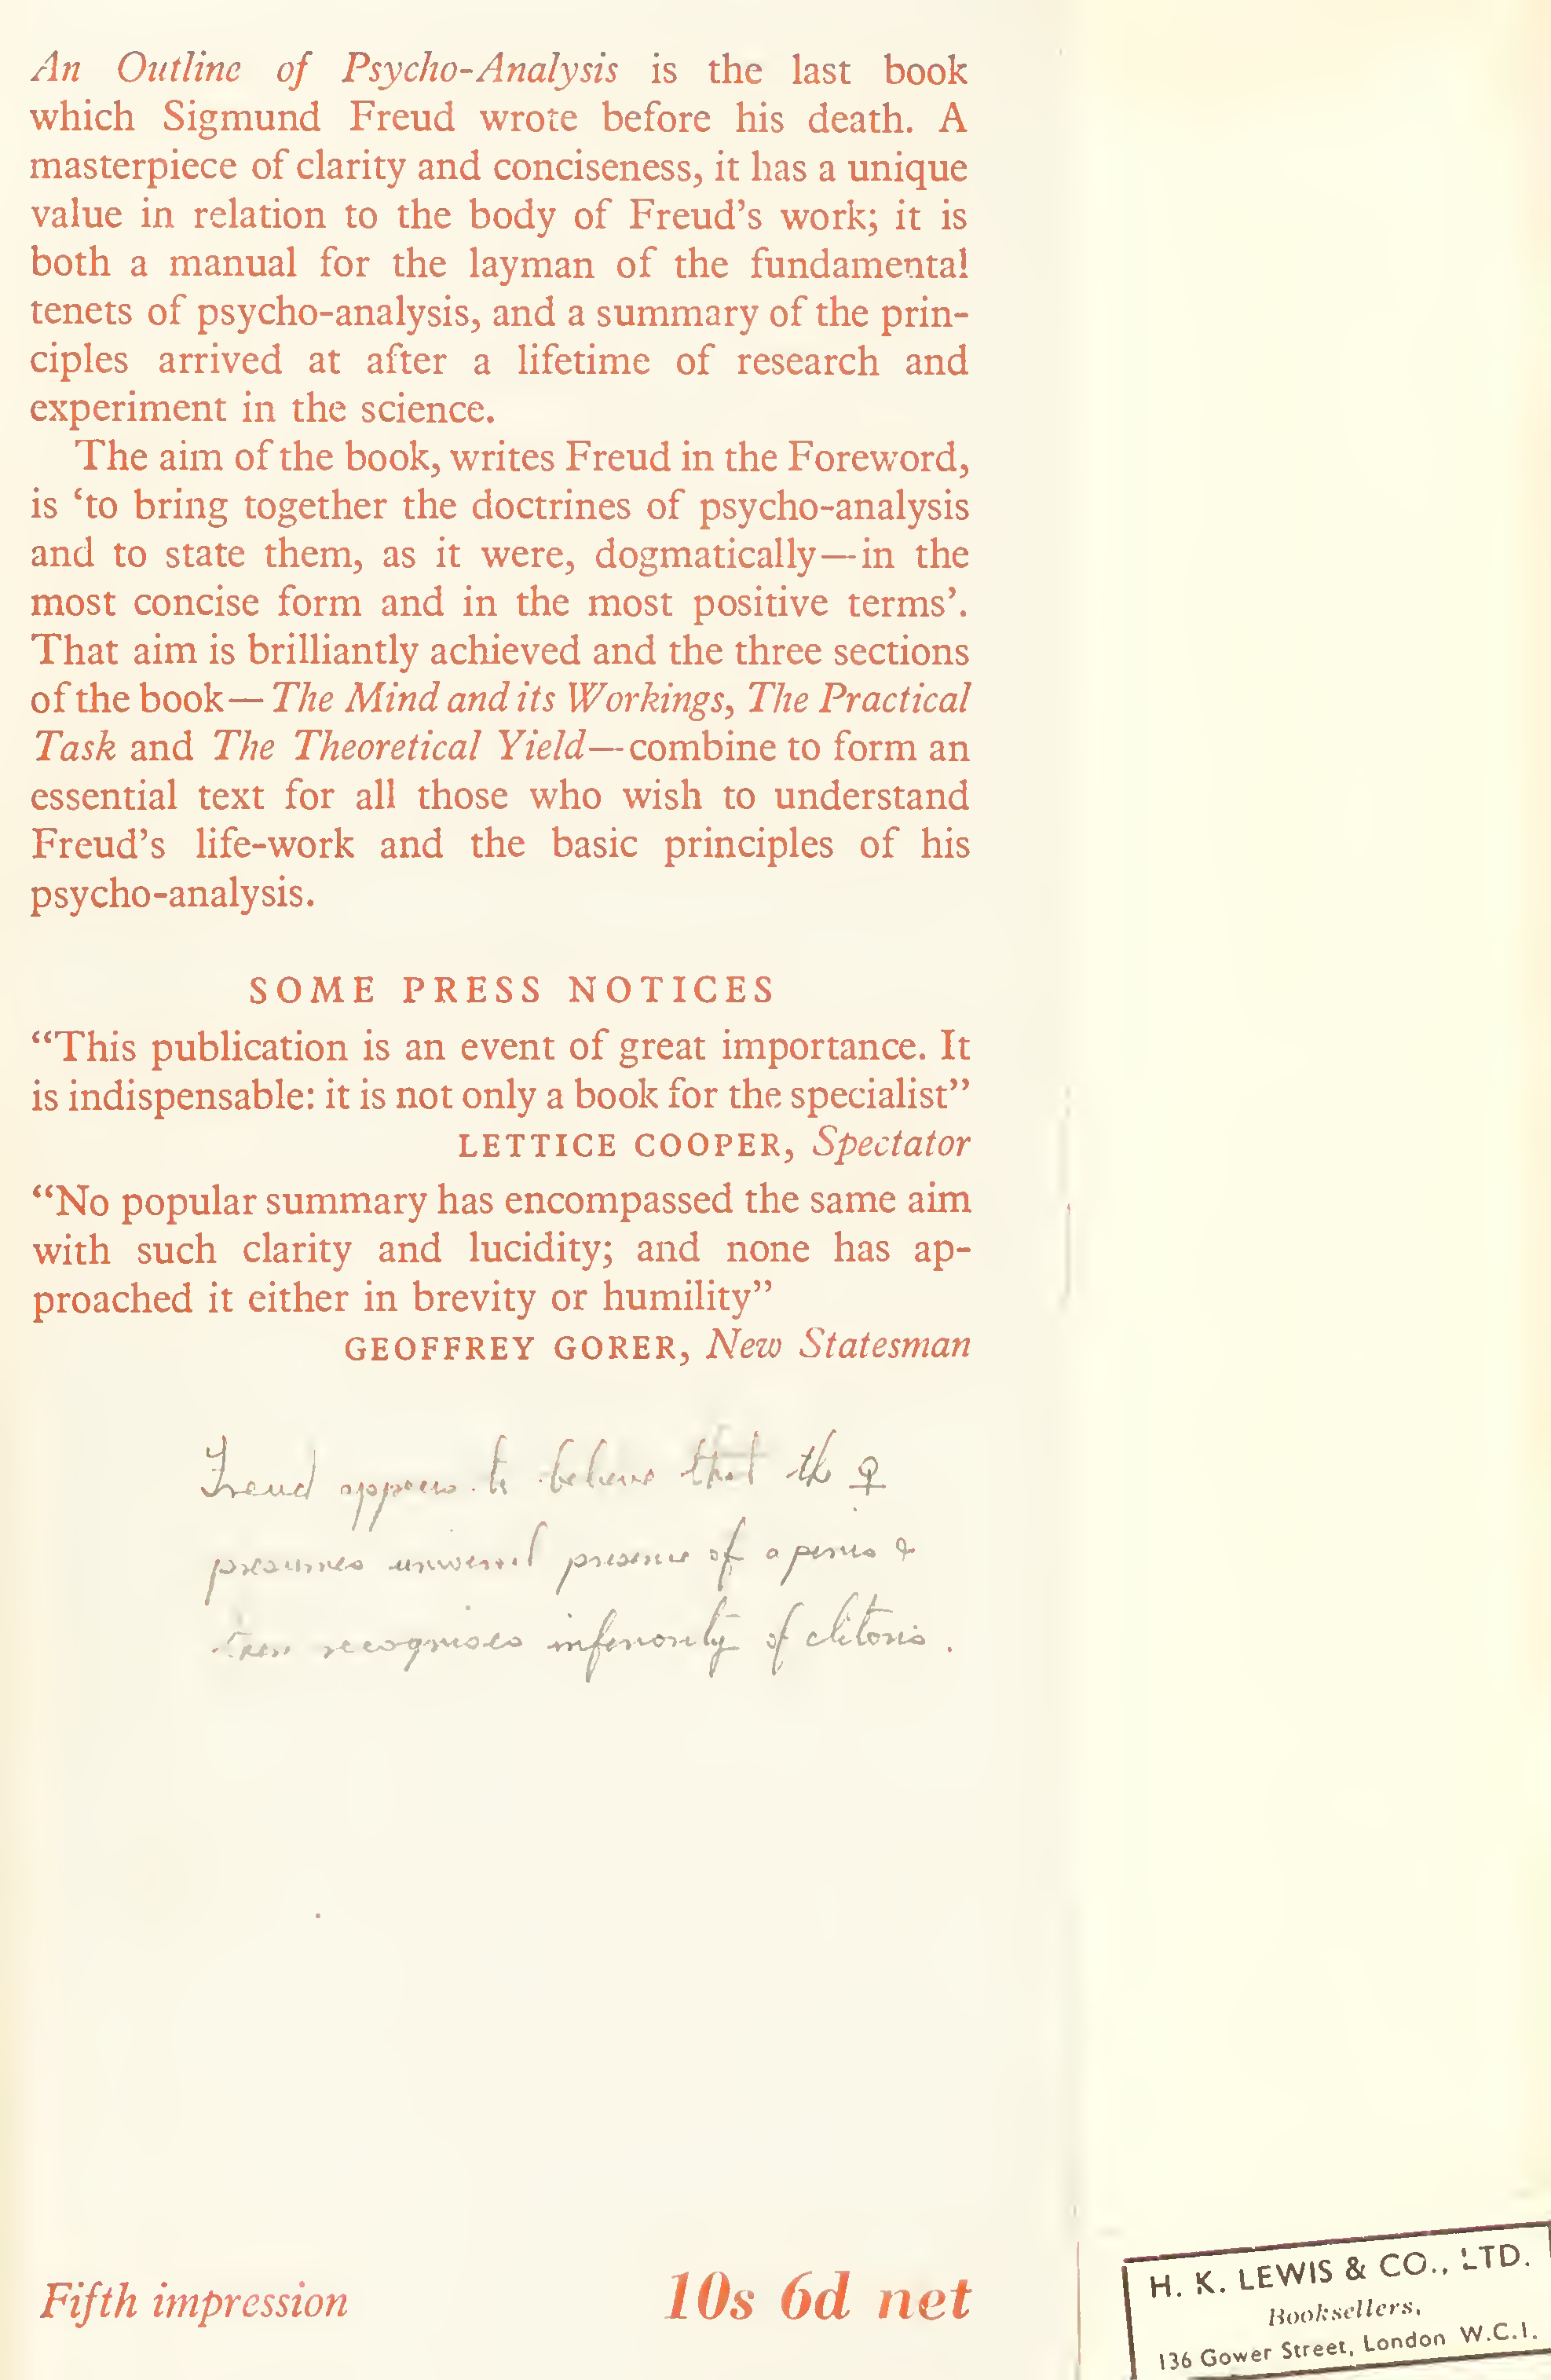 An Outline of Psycho-Analysis is the last book
which Sigmund Freud wrote before his death. A
masterpiece of clarity and conciseness, it has a unique
value in relation to the body of Freud's work; it is
both a manual for the layman of the fundamental
tenets of psycho-analysis, and a summary of the prin-
ciples arrived at after a lifetime of research and
experiment in the science.
The aim of the book, writes Freud in the Foreword,
is ‘to bring together the doctrines of psycho-analysis
and to state them, as it were, dogmatically—in the
most concise form and in the most positive terms’.
That aim is brilliantly achieved and the three sections
of the book—The Mind and its Workings, The Practical
Task and The Theoretical Yield—combine to form an
essential text for all those who wish to understand
Freud's life-work and the basic principles of his
psycho-analysis.
SOME PRESS NOTICES
“This publication is an event of great importance. It
is indispensable: it is not only a book for the specialist”
LETTICE COOPER, Spectator
“No popular summary has encompassed the same aim
with such clarity and lucidity; and none has ap-
proached it either in brevity or humility”
GEOFFREY GORER, New Statesman
Freud appears to believe that the ♀
presumes universal presence of a penis &
then recognises inferiority of clitoris.
Fifth impression
10s 6d net
H. K. LEWIS & CO., LTD.
Booksellers,
136 Gower Street, London W.C.1.